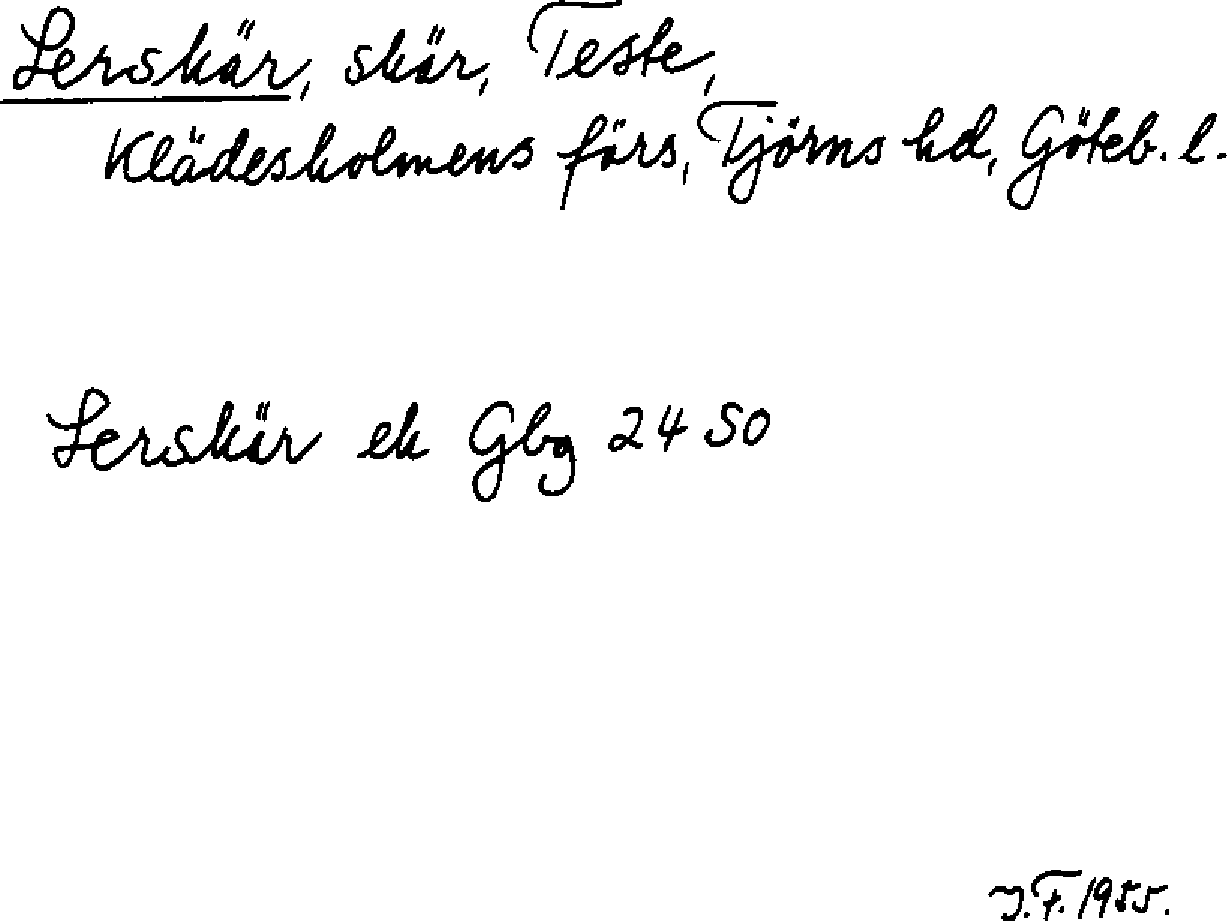 Lerskär, skär, Teste,
Klädesholmens förs, Tjörns hd, Göteb. l.
Lerskär ek Gbg 24 SO
J.F. 1955.